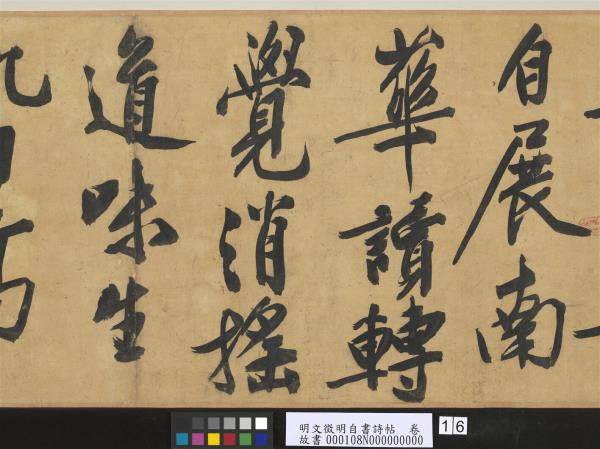 自展南
華讀轉
覺消搖
道味生
明文徵明自書詩帖 卷
故書000108N000000000
16